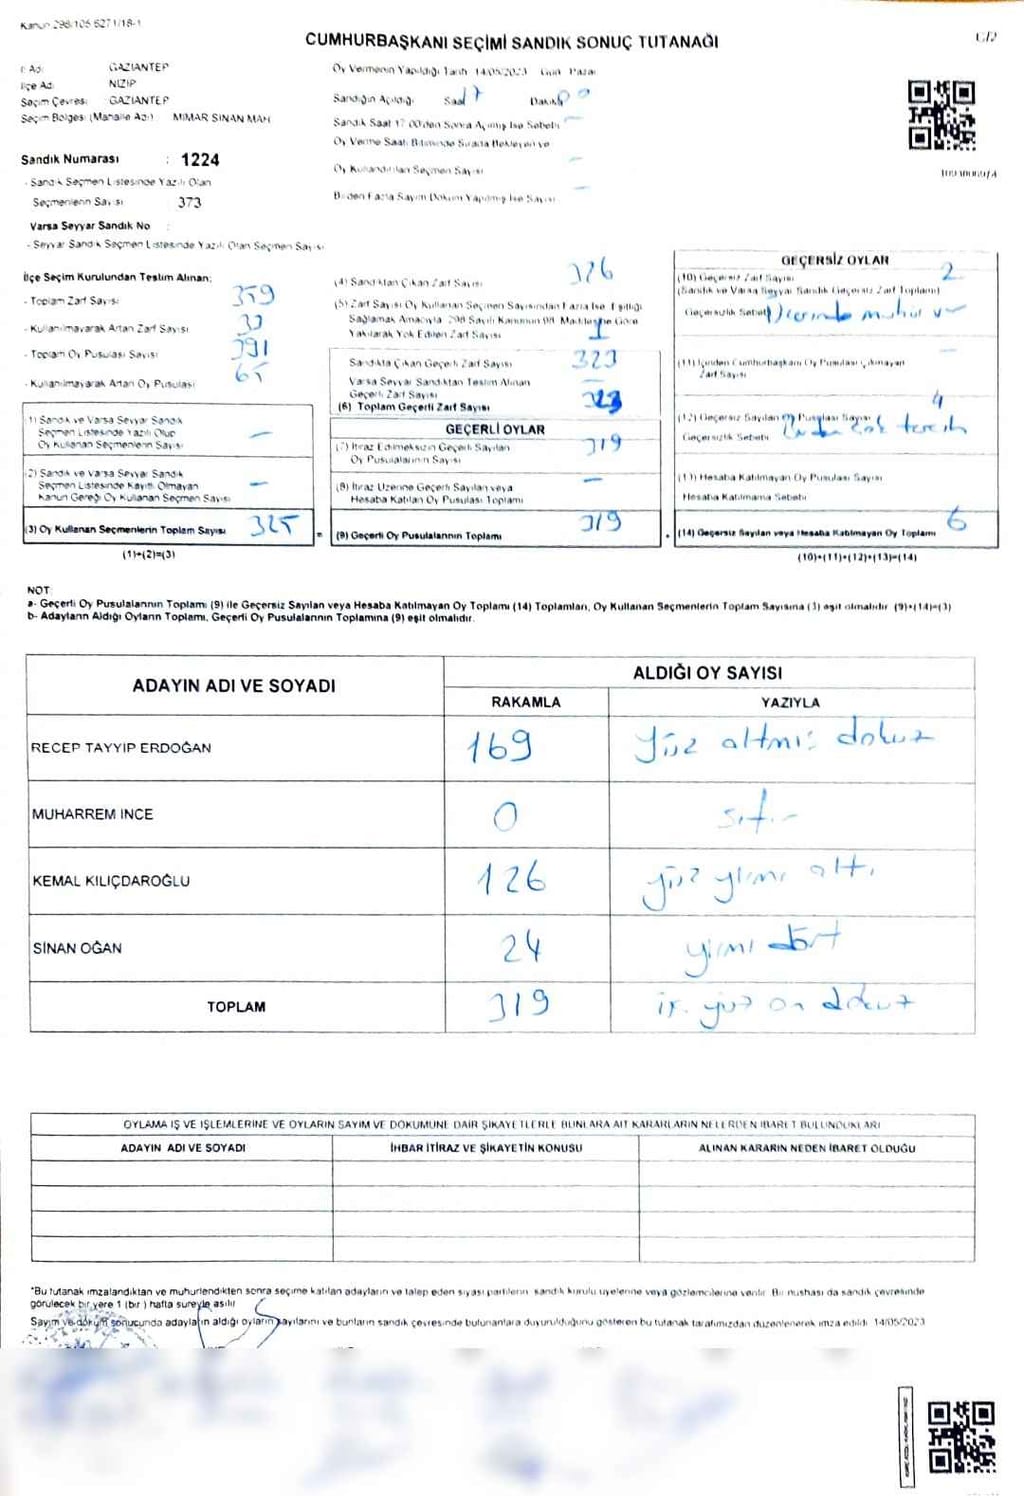 Kanun 298/105 6271/18-1
CUMHURBAŞKANI SEÇİMİ SANDIK SONUÇ TUTANAĞI
İl Adı GAZİANTEP
İlçe Adı NİZİP
Seçim Çevresi GAZİANTEP
Seçim Bölgesi (Mahalle Adı) MİMAR SİNAN MAH
Sandık Numarası : 1224
- Sandık Seçmen Listesinde Yazılı Olan
Seçmenlerin Sayısı 373
Varsa Seyyar Sandık No :
- Seyyar Sandık Seçmen Listesinde Yazılı Olan Seçmen Sayısı
Oy Vermenin Yapıldığı Tarih 14/05/2023 Gün Pazar
Sandığın Açıldığı Saat 17 Dakika 00
Sandık Saat 17 00'den Sonra Açılmış İse Sebebi —
Oy Verme Saati Bitiminde Sırada Bekleyen ve
Oy Kullandırılan Seçmen Sayısı —
Birden Fazla Sayım Döküm Yapılmış İse Sayısı —
İlçe Seçim Kurulundan Teslim Alınan;
- Toplam Zarf Sayısı 359
- Kullanılmayarak Artan Zarf Sayısı 33
- Toplam Oy Pusulası Sayısı 391
- Kullanılmayarak Artan Oy Pusulası 65
1) Sandık ve Varsa Seyyar Sandık
Seçmen Listesinde Yazılı Olup
Oy Kullanan Seçmenlerin Sayısı —
2) Sandık ve Varsa Seyyar Sandık
Seçmen Listesinde Kayıtlı Olmayan
Kanun Gereği Oy Kullanan Seçmen Sayısı —
(3) Oy Kullanan Seçmenlerin Toplam Sayısı 325
(1)+(2)=(3)
(4) Sandıktan Çıkan Zarf Sayısı 326
(5) Zarf Sayısı Oy Kullanan Seçmen Sayısından Fazla İse Eşitliği
Sağlamak Amacıyla 298 Sayılı Kanunun 98 Maddesine Göre
Yakılarak Yok Edilen Zarf Sayısı 1
Sandıkta Çıkan Geçerli Zarf Sayısı 323
Varsa Seyyar Sandıktan Teslim Alınan
Geçerli Zarf Sayısı —
(6) Toplam Geçerli Zarf Sayısı 323
GEÇERLİ OYLAR
(7) İtiraz Edilmeksizin Geçerli Sayılan
Oy Pusulalarının Sayısı 319
(8) İtiraz Üzerine Geçerli Sayılan veya
Hesaba Katılan Oy Pusulası Toplamı —
= (9) Geçerli Oy Pusulalarının Toplamı 319
GEÇERSİZ OYLAR
(10) Geçersiz Zarf Sayısı 2
(Sandık ve Varsa Seyyar Sandık Geçersiz Zarf Toplamı)
Geçersizlik Sebebi Üzerinde mühür var
(11) İçinden Cumhurbaşkanı Oy Pusulası Çıkmayan
Zarf Sayısı —
(12) Geçersiz Sayılan Oy Pusulası Sayısı 4
Geçersizlik Sebebi Birden çok tercih
(13) Hesaba Katılmayan Oy Pusulası Sayısı
Hesaba Katılmama Sebebi
+ (14) Geçersiz Sayılan veya Hesaba Katılmayan Oy Toplamı 6
(10)+(11)+(12)+(13)=(14)
NOT:
a- Geçerli Oy Pusulalarının Toplamı (9) ile Geçersiz Sayılan veya Hesaba Katılmayan Oy Toplamı (14) Toplamları, Oy Kullanan Seçmenlerin Toplam Sayısına (3) eşit olmalıdır (9)+(14)=(3)
b- Adayların Aldığı Oyların Toplamı, Geçerli Oy Pusulalarının Toplamına (9) eşit olmalıdır.
ADAYIN ADI VE SOYADI
ALDIĞI OY SAYISI
RAKAMLA YAZIYLA
RECEP TAYYIP ERDOĞAN 169 yüz altmış dokuz
MUHARREM İNCE 0 sıfır
KEMAL KILIÇDAROĞLU 126 yüz yirmi altı
SİNAN OĞAN 24 yirmi dört
TOPLAM 319 üç yüz on dokuz
OYLAMA İŞ VE İŞLEMLERİNE VE OYLARIN SAYIM VE DÖKÜMÜNE DAİR ŞİKAYETLERLE BUNLARA AİT KARARLARIN NELERDEN İBARET BULUNDUKLARI
ADAYIN ADI VE SOYADI İHBAR İTİRAZ VE ŞİKAYETİN KONUSU ALINAN KARARIN NEDEN İBARET OLDUĞU
*Bu tutanak imzalandıktan ve mühürlendikten sonra seçime katılan adayların ve talep eden siyasi partilerin sandık kurulu üyelerine veya gözlemcilerine verilir. Bir nüshası da sandık çevresinde
görülecek bir yere 1 (bir ) hafta süreyle asılır
Sayım ve döküm sonucunda adayların aldığı oyların sayılarını ve bunların sandık çevresinde bulunanlara duyurulduğunu gösteren bu tutanak tarafımızdan düzenlenerek imza edildi 14/05/2023